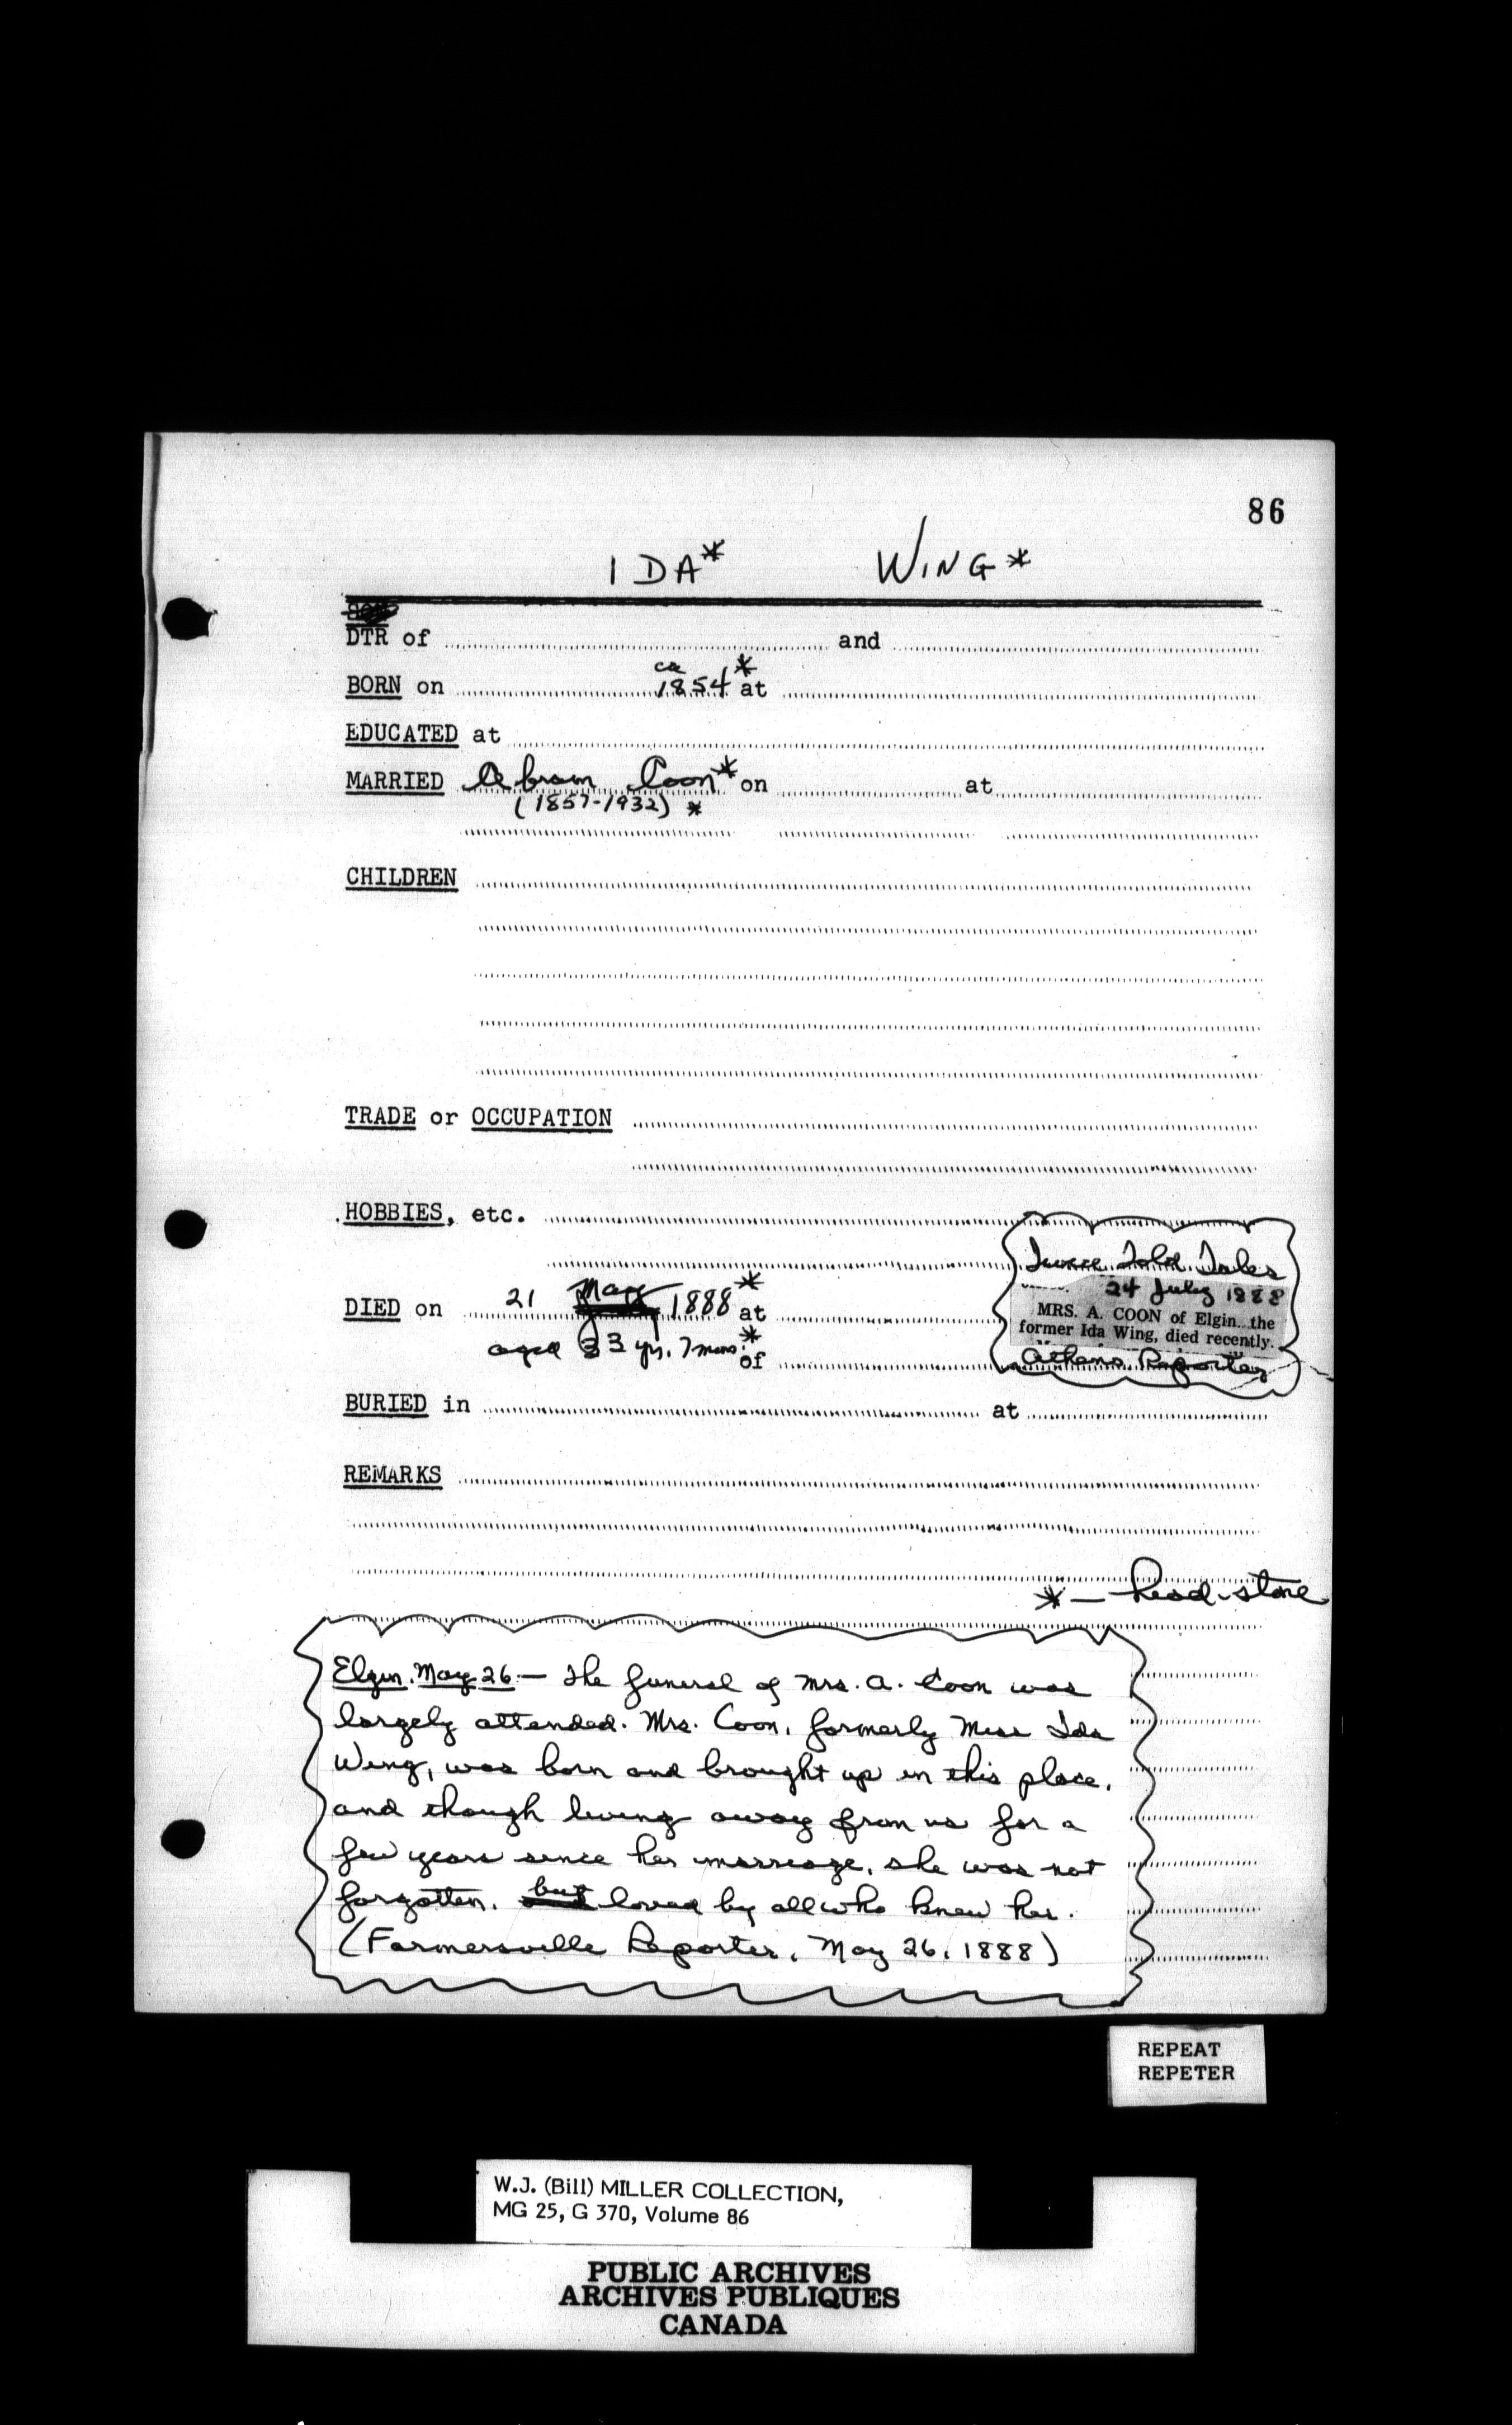 86
IDA* WING*
DTR of and
BORN on ca 1854* at
EDUCATED at
MARRIED Abram Coon* on at
(1857-1932) *
CHILDREN
TRADE or OCCUPATION
HOBBIES, etc.
Twice Told Tales
24 July 1888
MRS. A. COON of Elgin...the
former Ida Wing, died recently.
Athens Reporter
DIED on 21 May 1888* at
aged 33 yrs. 7 mons.* of
BURIED in at
REMARKS
* — head-stone
Elgin. May 26. — The funeral of Mrs. A. Coon was
largely attended. Mrs. Coon, formerly Miss Ida
Wing, was born and brought up in this place,
and though living away from us for a
few years since her marriage, she was not
forgotten, but loved by all who knew her.
(Farmersville Reporter, May 26, 1888)
REPEAT
REPETER
W.J. (Bill) MILLER COLLECTION,
MG 25, G 370, Volume 86
PUBLIC ARCHIVES
ARCHIVES PUBLIQUES
CANADA